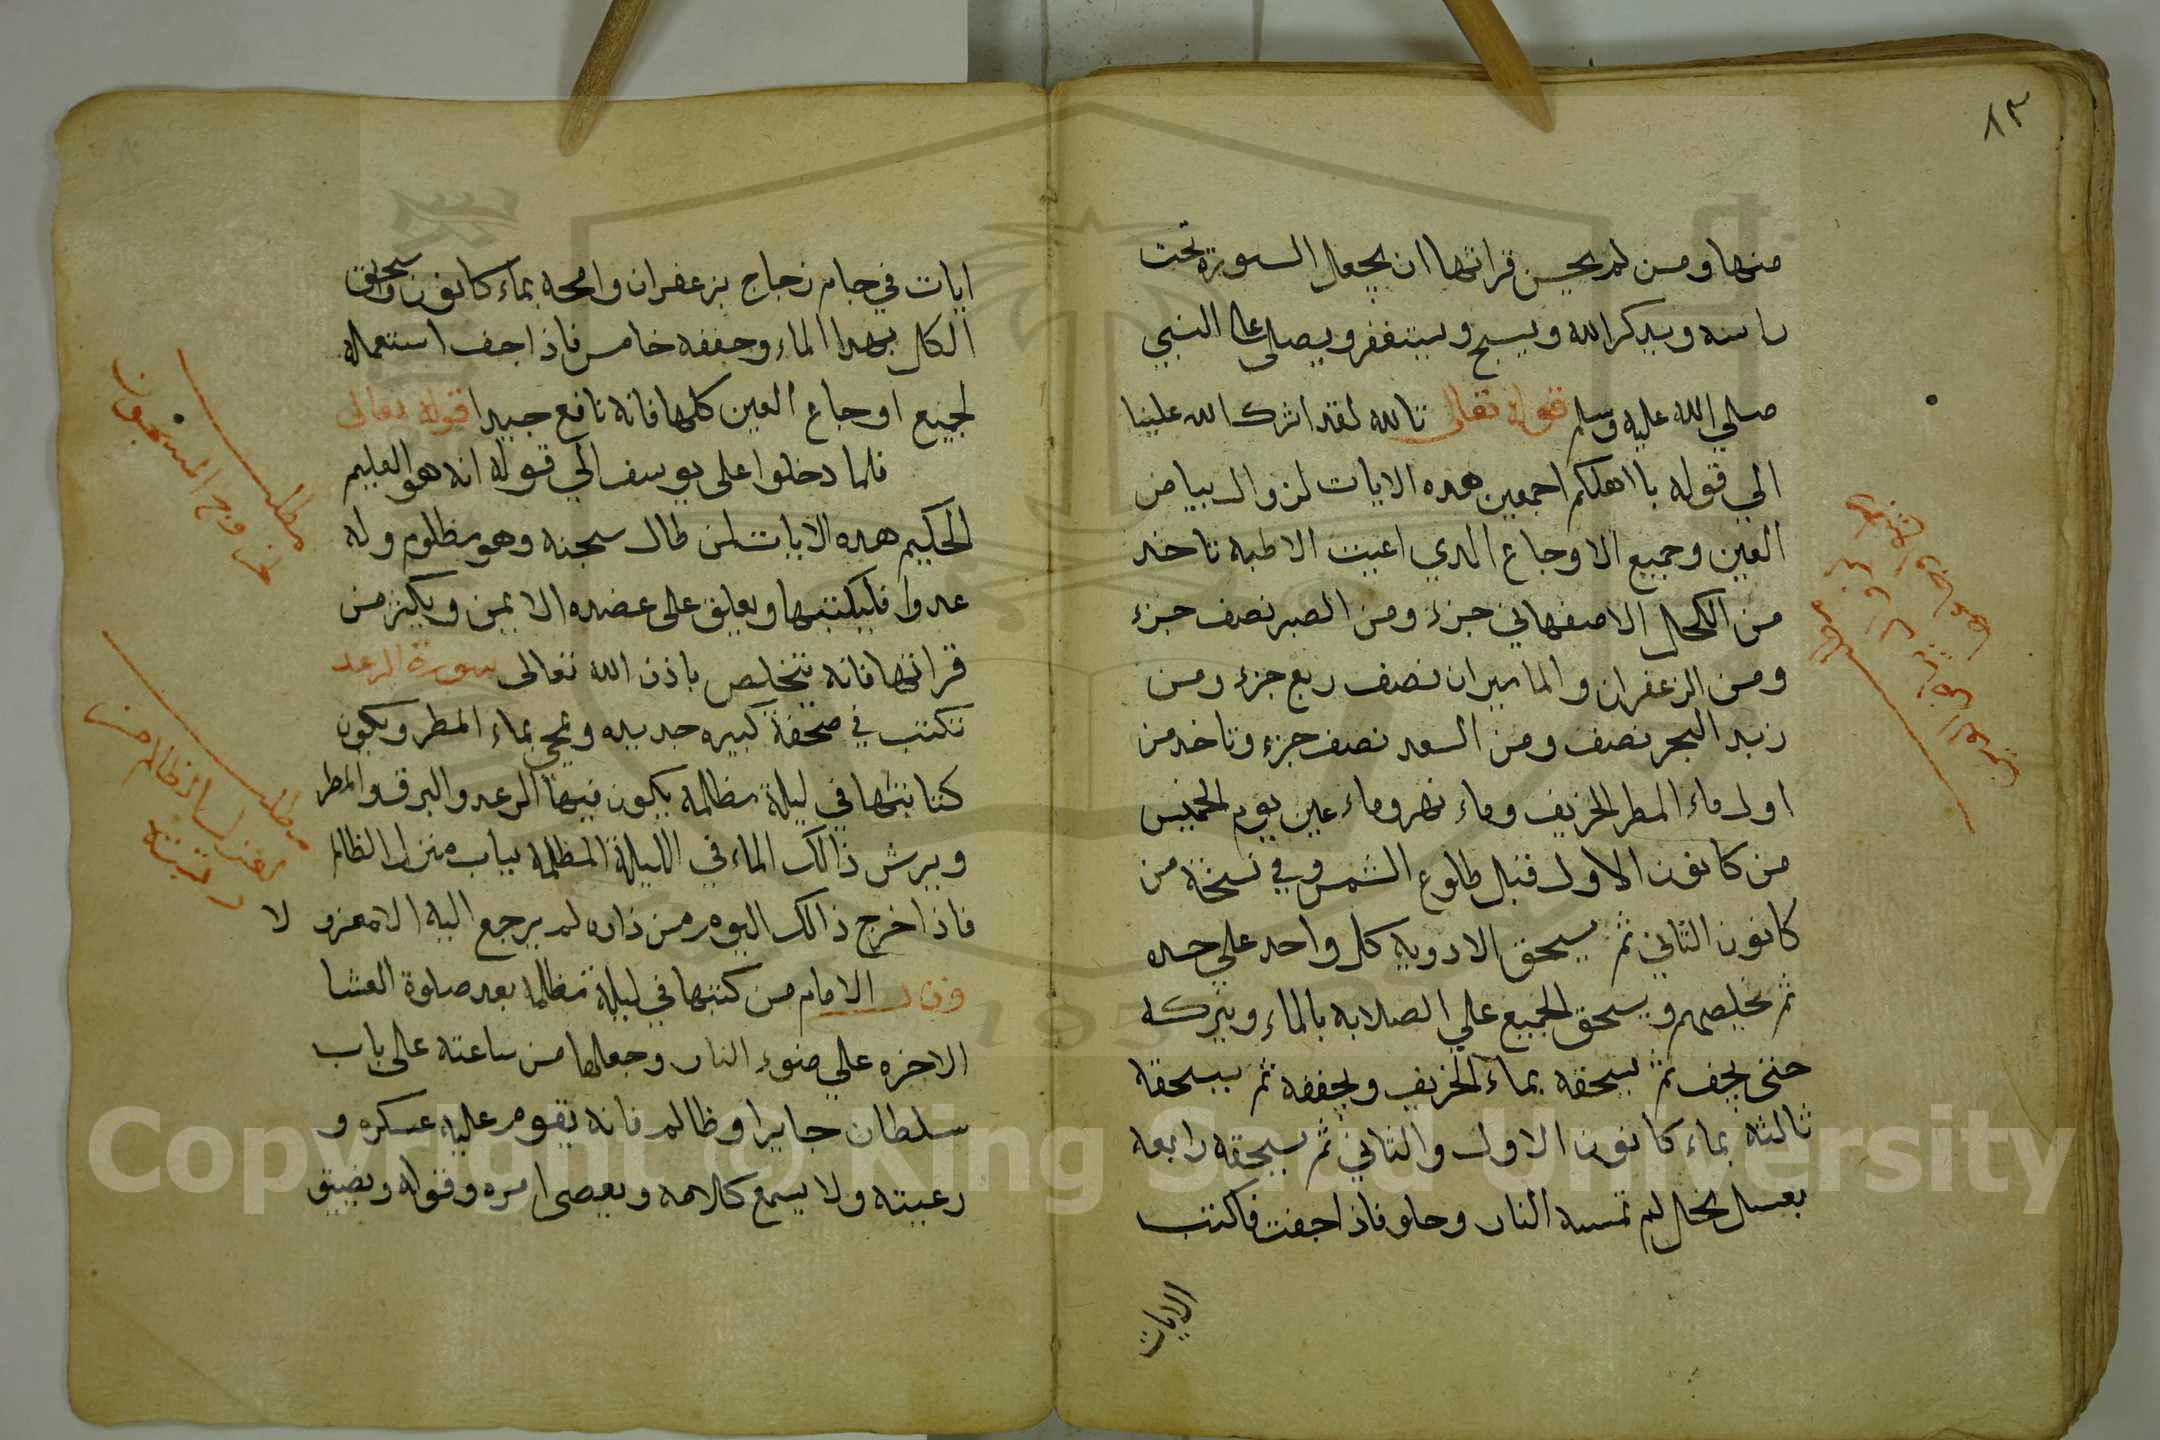 ٨٣
منها ومن لم يحسن قراتها ان يجعل السورة تحت
راسه ويدكر الله ويسبح ويستغفر ويصلى على النبي
صلي الله عليه وسلم قوله تعالى تالله لقد اثرك الله علينا
الي قوله باهلكم اجمعين هده الايات لزوال بياض
العين وجميع الاوجاع الدي اعيت الاطبه تاخد
من الكحل الاصفهاني جزء ومن الصبر نصف جزء
ومن الزعفران والماميران نصف ربع جزء ومن
زبد البحر نصف ومن السعد نصف جزء وتاخد من
اول ماء المطر الخريف وماء نهر وماء عين يوم الخميس
من كانون الاول قبل طلوع الشمس وفي نسخة من
كانون الثاني ثم يسحق الادويه كل واحد علي حده
ثم يخلصهم ويسحق الجميع علي الصلابه بالماء ويتركه
حتى يجف ثم يسحقه بماء الخريف ويجففه ثم يسحقه
ثالثه بماء كانون الاول والثاني ثم يسحقه رابعه
بعسل نحل لم تمسه النار وحلو فاذا جفت فاكتب
الايات
ايات في جام زجاج بزعفران وامحه بماء كانون واسحق
الكل بهدا الماء وجففه خامس فاذا جف استعمله
لجميع اوجاع العين كلها فانه نافع جيدا قوله تعالى
فلما دخلوا على يوسف الي قوله انه هو العليم
الحكيم هده الايات لمن طال سجنه وهو مظلوم وله
عدوا فليكتبها ويعلق على عضده الايمن ويكثر من
قراتها فانه يتخلص باذن الله تعالى سورة الرعد
تكتب في صحفة كبيره جديده وتمحى بماء المطر ويكون
كتابتها في ليلة مظلمه يكون فيها الرعد والبرق والمطر
ويرش ذالك الماء في الليلة المظلمه بباب منزل الظالم
فاذا خرج ذالك اليوم من داره لم يرجع اليه الا معزو
لا
وقال الامام من كتبها في ليلة مظلمه بعد صلوة العشا
الاخره علي ضوء النار وجعلها من ساعته على باب
سلطان جايرا وظالم فانه يقوم عليه عسكره و
رعيته ولا يسمع كلامه ويعصى امره وقوله ويضيق
مطلب
خروج المسجون
مطلب